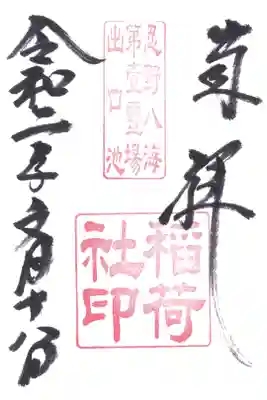 奉拝
忍野八海
第壹霊場
出口池
稲荷
社印
令和二年文月十八日